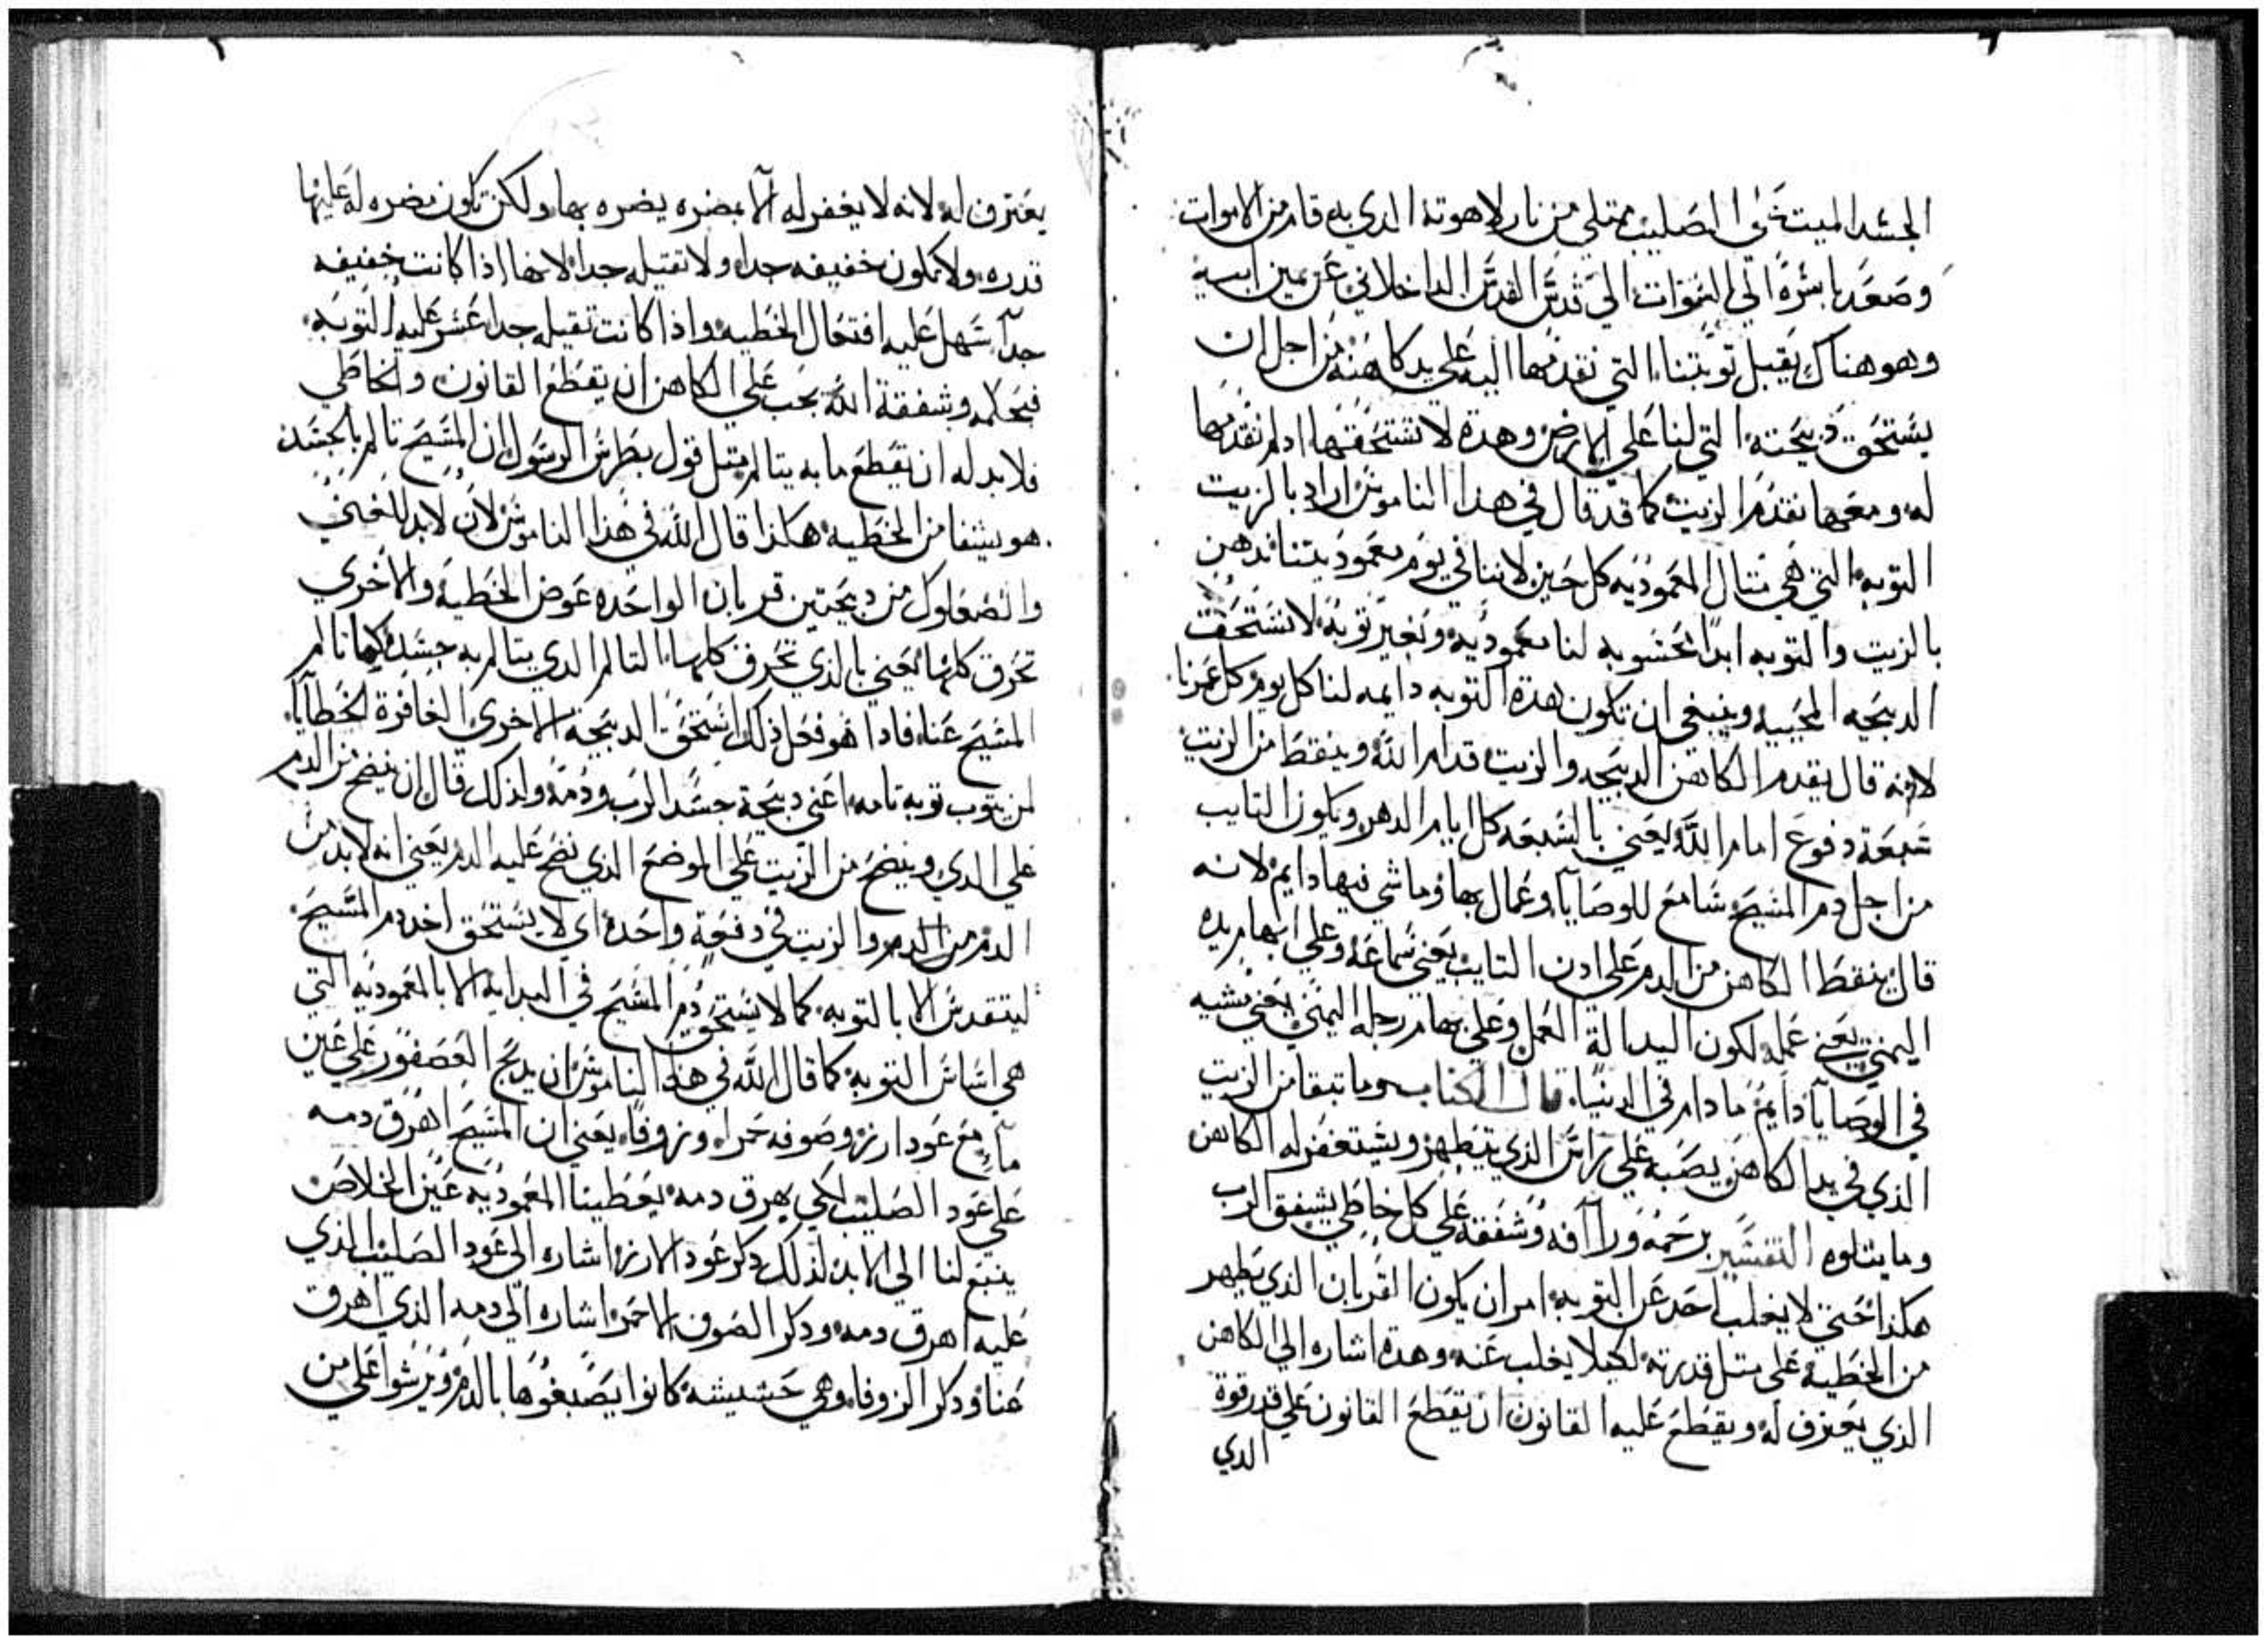 الجسد الميت على الصليب ممتلي من نار لاهوته الدي به قام من الاموات
وصعد باشره الي السموات الي قدس القدس الداخلاني عن يمين ابيه
وهو هناك يقبل توبتنا التي نقدمها اليه على يد كاهنه من اجل ان
يستحق دبيحته التي لنا على الارض وهده لا تستحقها ادلم نقدمها
له ومعها نقدم الزيت كما قد قال في هدا الناموس اراد بالزيت
التوبه التي هي متال المعموديه كل حين لاننا في يوم معموديتنا ندهن
بالزيت والتوبه ابدا محسوبه لنا معموديه وبغير توبه لا نستحق
الدبيحه المحييه وينبغي ان تكون هده التوبه دايمه لنا كل يوم كل عمرنا
لانه قال يقدم الكاهن الدبيحه والزيت قدام الله وينقط من الزيت
سبعة دفوع امام الله يعني بالسبعه كل ايام الدهر ويكون التايب
من اجل دم المسيح سامع للوصايا وعمال بها وماشي فيها دايم لانه
قال ينقط الكاهن من الدم على ادن التايب يعني سماعه وعلى ابهام يده
اليمني يعني عمله لكون اليد الة العمل وعلى بهام رجله اليمني يعني مشيه
في الوصايا دايم ما دام في الدنيا قال الكتاب وما تبقا من الزيت
الذي في يد الكاهن يصبه على راس الذي يتطهر ويستغفر له الكاهن
وما يتلوه التفسير برحمه وراافه وشفقه على كل خاطي يشفق الرب
هكذا حتي لا يغلب احد عن التوبه امر ان يكون القربان الذي يطهر
من الخطيه على متل قدرته لكيلا يغلب عنه وهده اشاره الي الكاهن
الذي يعترف له ويقطع عليه القانون ان يقطع القانون على قدر قوة
الدي
يعترف له لانه لا يغفر له الا بمضره يضره بها ولكن تكون مضره له عليها
قدره ولا تكون خفيفه جدا ولا تقيله جدا لانها اذا كانت خفيفه
جدا سهل عليه افتعال الخطيه واذا كانت تقيله جدا عسر عليه التوبه
فبحكمه وشفقة الله يجب على الكاهن ان يقطع القانون والخاطي
فلا بد له ان يقطع ما به يتالم متل قول بطرس الرسول ان المسيح تالم بالجسد
هو يشفا من الخطيه هكذا قال الله في هذا الناموس لان لابد للغني
والصعلوك من دبيحتين قربان الواحده عوض الخطيه والاخري
تحرق كلها يعني بالذي تحرق كلها التالم الدي يتالم به جسده كما تالم
المسيح عنا فادا هو فعل ذلك استحق الدبيحه الاخري الغافرة لخطايا
لمن يتوب توبه تامه اعني دبيحة جسد الرب ودمه ولذلك قال ان ينضح من الدم
على الدي وينضح من الزيت على الموضع الذي نضح عليه الدم يعني انه لابد من
الدم من الدم والزيت في دفعة واحده اي لا يستحق اخد دم المسيح
ليتقدس الا بالتوبه كما لا يستحق دم المسيح في البدايه الا بالمعموديه التي
هي اساس التوبه كما قال الله في هذا الناموس ان يدبح العصفور على عين
ماء مع عود ارز وصوفه حمرا وزوفا يعني ان المسيح اهرق دمه
على عود الصليب لكي يهرق دمه يعطينا المعموديه عين الخلاص
ينبع لنا الي الابد لذلك دكر عود الارز اشاره الي عود الصليب الذي
عليه اهرق دمه ودكر الصوف الاحمر اشاره الي دمه الذي اهرق
عنا ودكر الزوفا وهي حشيشه كانوا يصبغوها بالدم ويرشوا على من